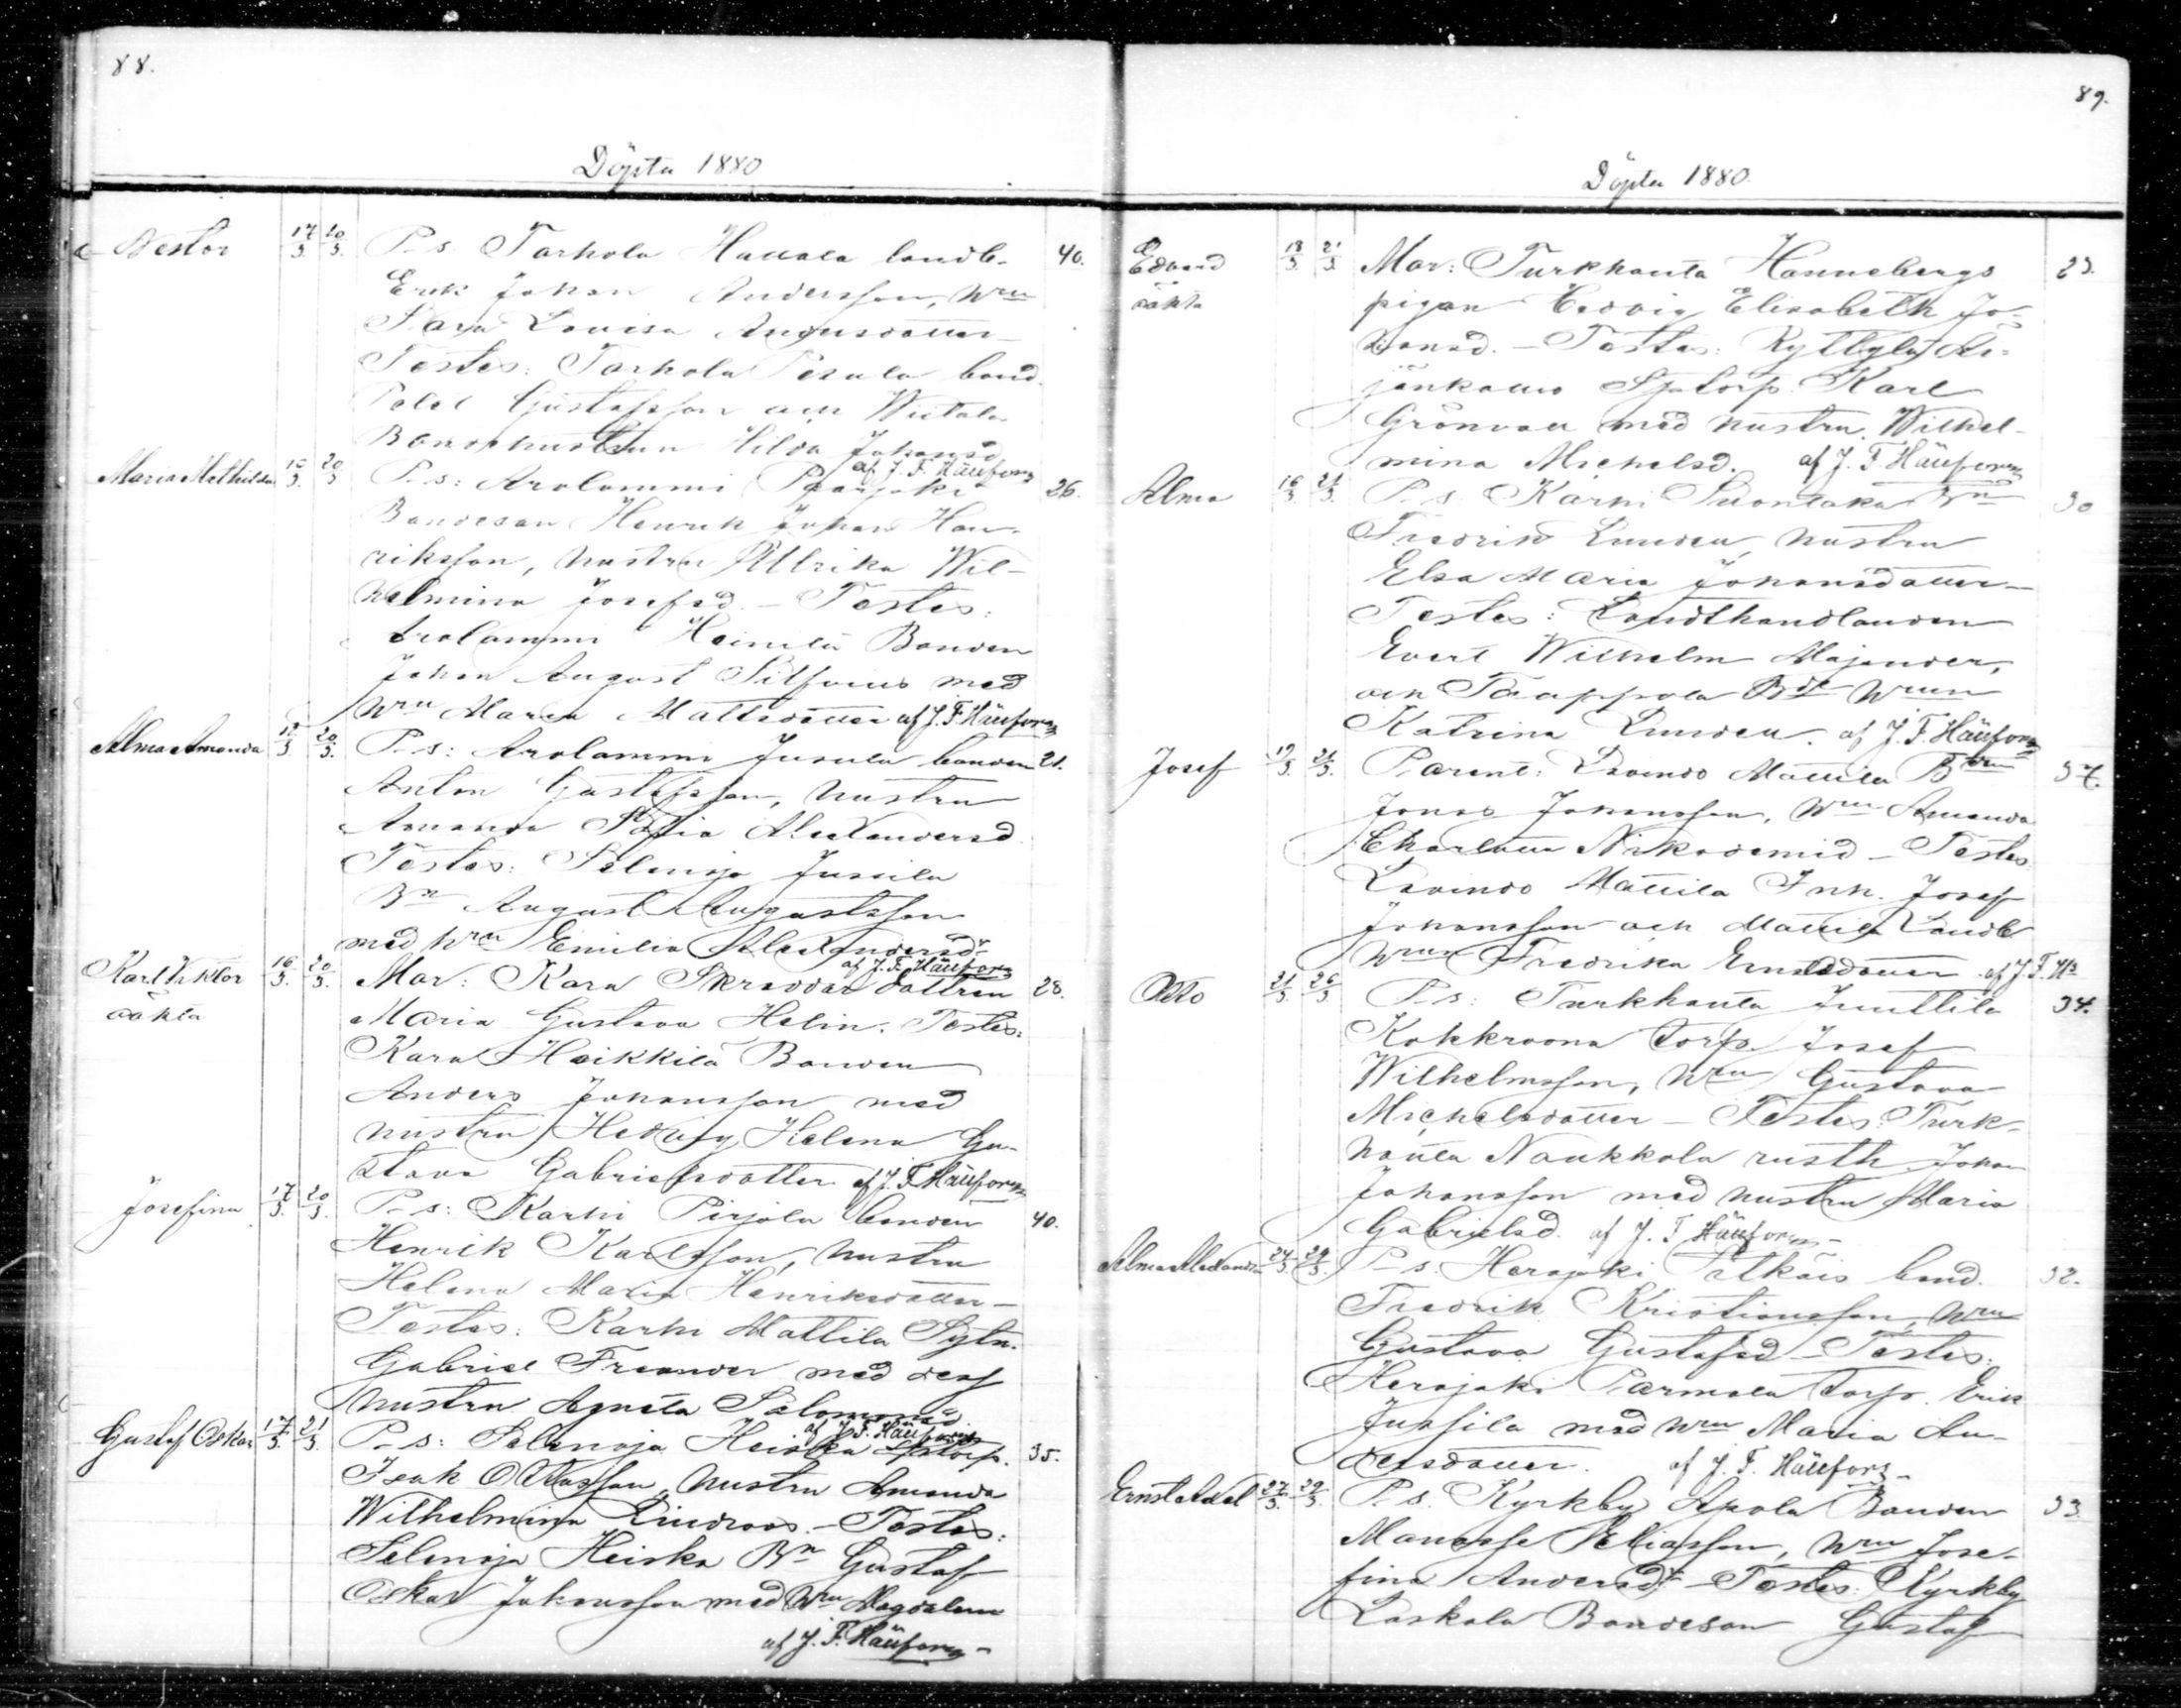 88.
Döpta 1880
Nestor 17/3. 20/3. P-s. Tarhola Hauala landb. 40.
Erik Johan Andersson, hru
Sara Lovisa Andersdotter
Testes: Tarhola Pesula bond.
Gustafsson och Wiitala
Bondehustrun Hilda Johansd.
af J. F. Hällfors
Maria Mathilda 20/3 P-s: Arolammi 26.
Bondeson Henrik Johan Hen-
riksson, hustru Ulrika Wil-
helmina Josefsd. - Testes:
Arolammi Heinilä Bonden
Johan August Silfvius med
hru Maria Mattsdotter af J. F. Hällfors
Alma Amanda 18/3 20/3. P-s: Arolammi Jusula bonden 21.
Anton Gustafsson, hustru
Amanda Sofia Alexandersd.
Testes: Selenoja Jussila
Bn August Augustsson
med hru Emilia Alexandersdr
af J. F. Hällfors
Karl Viktor 16/3. 20/3. Mar: Kara Skreddar dottren 28.
oäkta Maria Gustava Helin. Testes:
Kara Heikkilä Bonden
Anders Johansson med
hustru Hedvig Helena Gu-
stava Gabrielsdotter af J. F. Hällfors
Josefina 17/3. 20/3. P-s: Karhi Pirjola bonden 40.
Henrik Karlsson, hustru
Helena Maria Henriksdotter -
Testes: Karhi Mattila Sytn.
Gabriel Freander med dess
hustru Agneta Salomonsd.
af J. F. Hällfors
Gustaf Oskar 17/3. 21/3. P-s: Selenoja Heiska Sptorp. 35.
Isak Ottosson, hustru Amanda
Wilhelmina Lindroos. - Testes:
Selenoja Heiska Bn Gustaf
Oskar Johansson med hru Magdalena
af J. F. Hällfors -
89.
Döpta 1880.
Edvard 18/3 21/3 Mar: Turkhauta Hannebergs 23.
oäkta pigan Hedvig Elisabeth Jo-
hansd. - Testes: Ryttylä
Sptorp. Karl
Grönvall med hustru Wilhel-
mina Michelsd. af J. F. Hällfors
Alma 16/3 21/3. P-s. Karhi Suontaka Bn 30
Fredrik Lunden, hustru
Elsa Maria Johansdotter -
Testes: Landthandlanden
Evert Wilhelm Majander,
och Taappola Bd hrun
Katrina Lunden. af J. F. Hällfors
Josef 19/3. 21/3. Parent: Lavindo Mattila Bden 37.
Jonas Johansson, hru Amanda
Charlotta Nikodemid - Testes
Lavindo Mattila Inh. Josef
Johansson och Mattila Landb
hrun Fredrika Ernstsdotter af J. F. Hs
Otto 21/3. 26/3 P-s: Turkhauta Junttila 34.
Kokkroona torp. Josef
Wilhelmsson, hru Gustava
Michelsdotter - Testes: Turk-
hauta Naukkola rusth. Johan
Johansson med hustru Maria
Gabrielsd. af J. F. Hällfors -
Alma Alexandra 24/3. 29/3. P-s. Herajoki Pitkäis bond. 32.
Fredrik Kristiansson, hru
Gustava Gustafsd - Testes:
Herajoki Parmala torp. Erik
Jussila med hru Maria An-
dersdotter. af J. F. Hällfors -
Ernst Axel 27/3. 29/3. P-s. Kyrkby Apola Bonden 33
Manasse Eliasson, hru Jose-
fina Andersdr - Testes: Kyrkby
Laskala Bondeson Gustaf